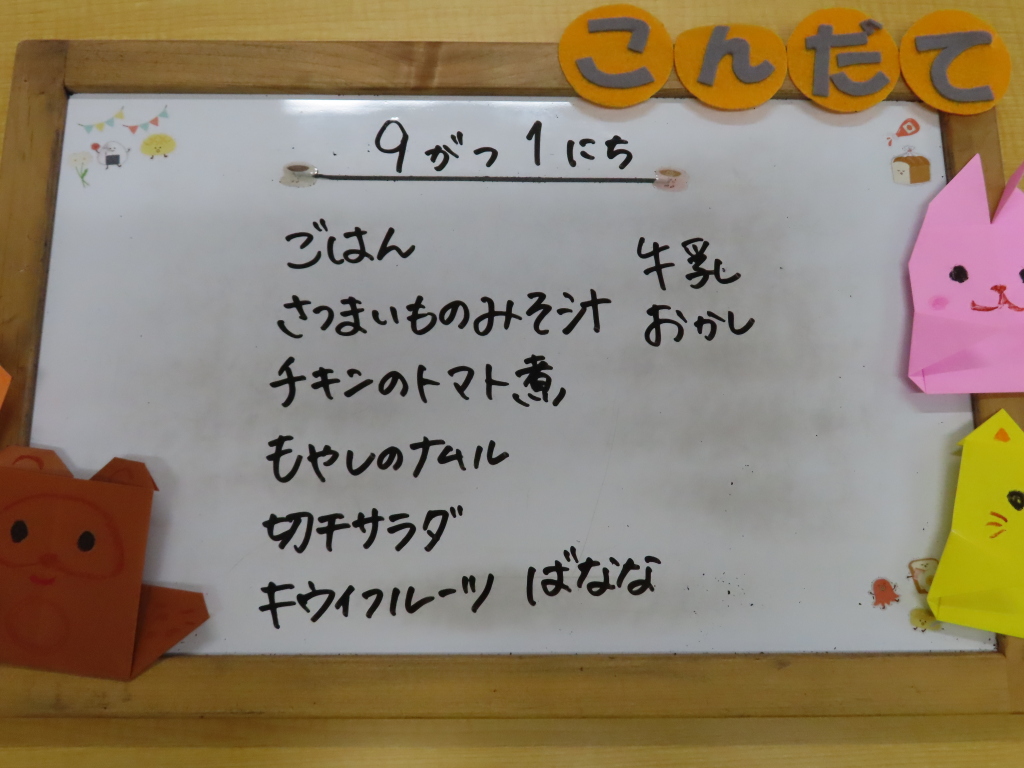 こんだて
9がつ1にち
ごはん
さつまいものみそ汁
チキンのトマト煮
もやしのナムル
切干サラダ
キウイフルーツ ばなな
牛乳
おかし